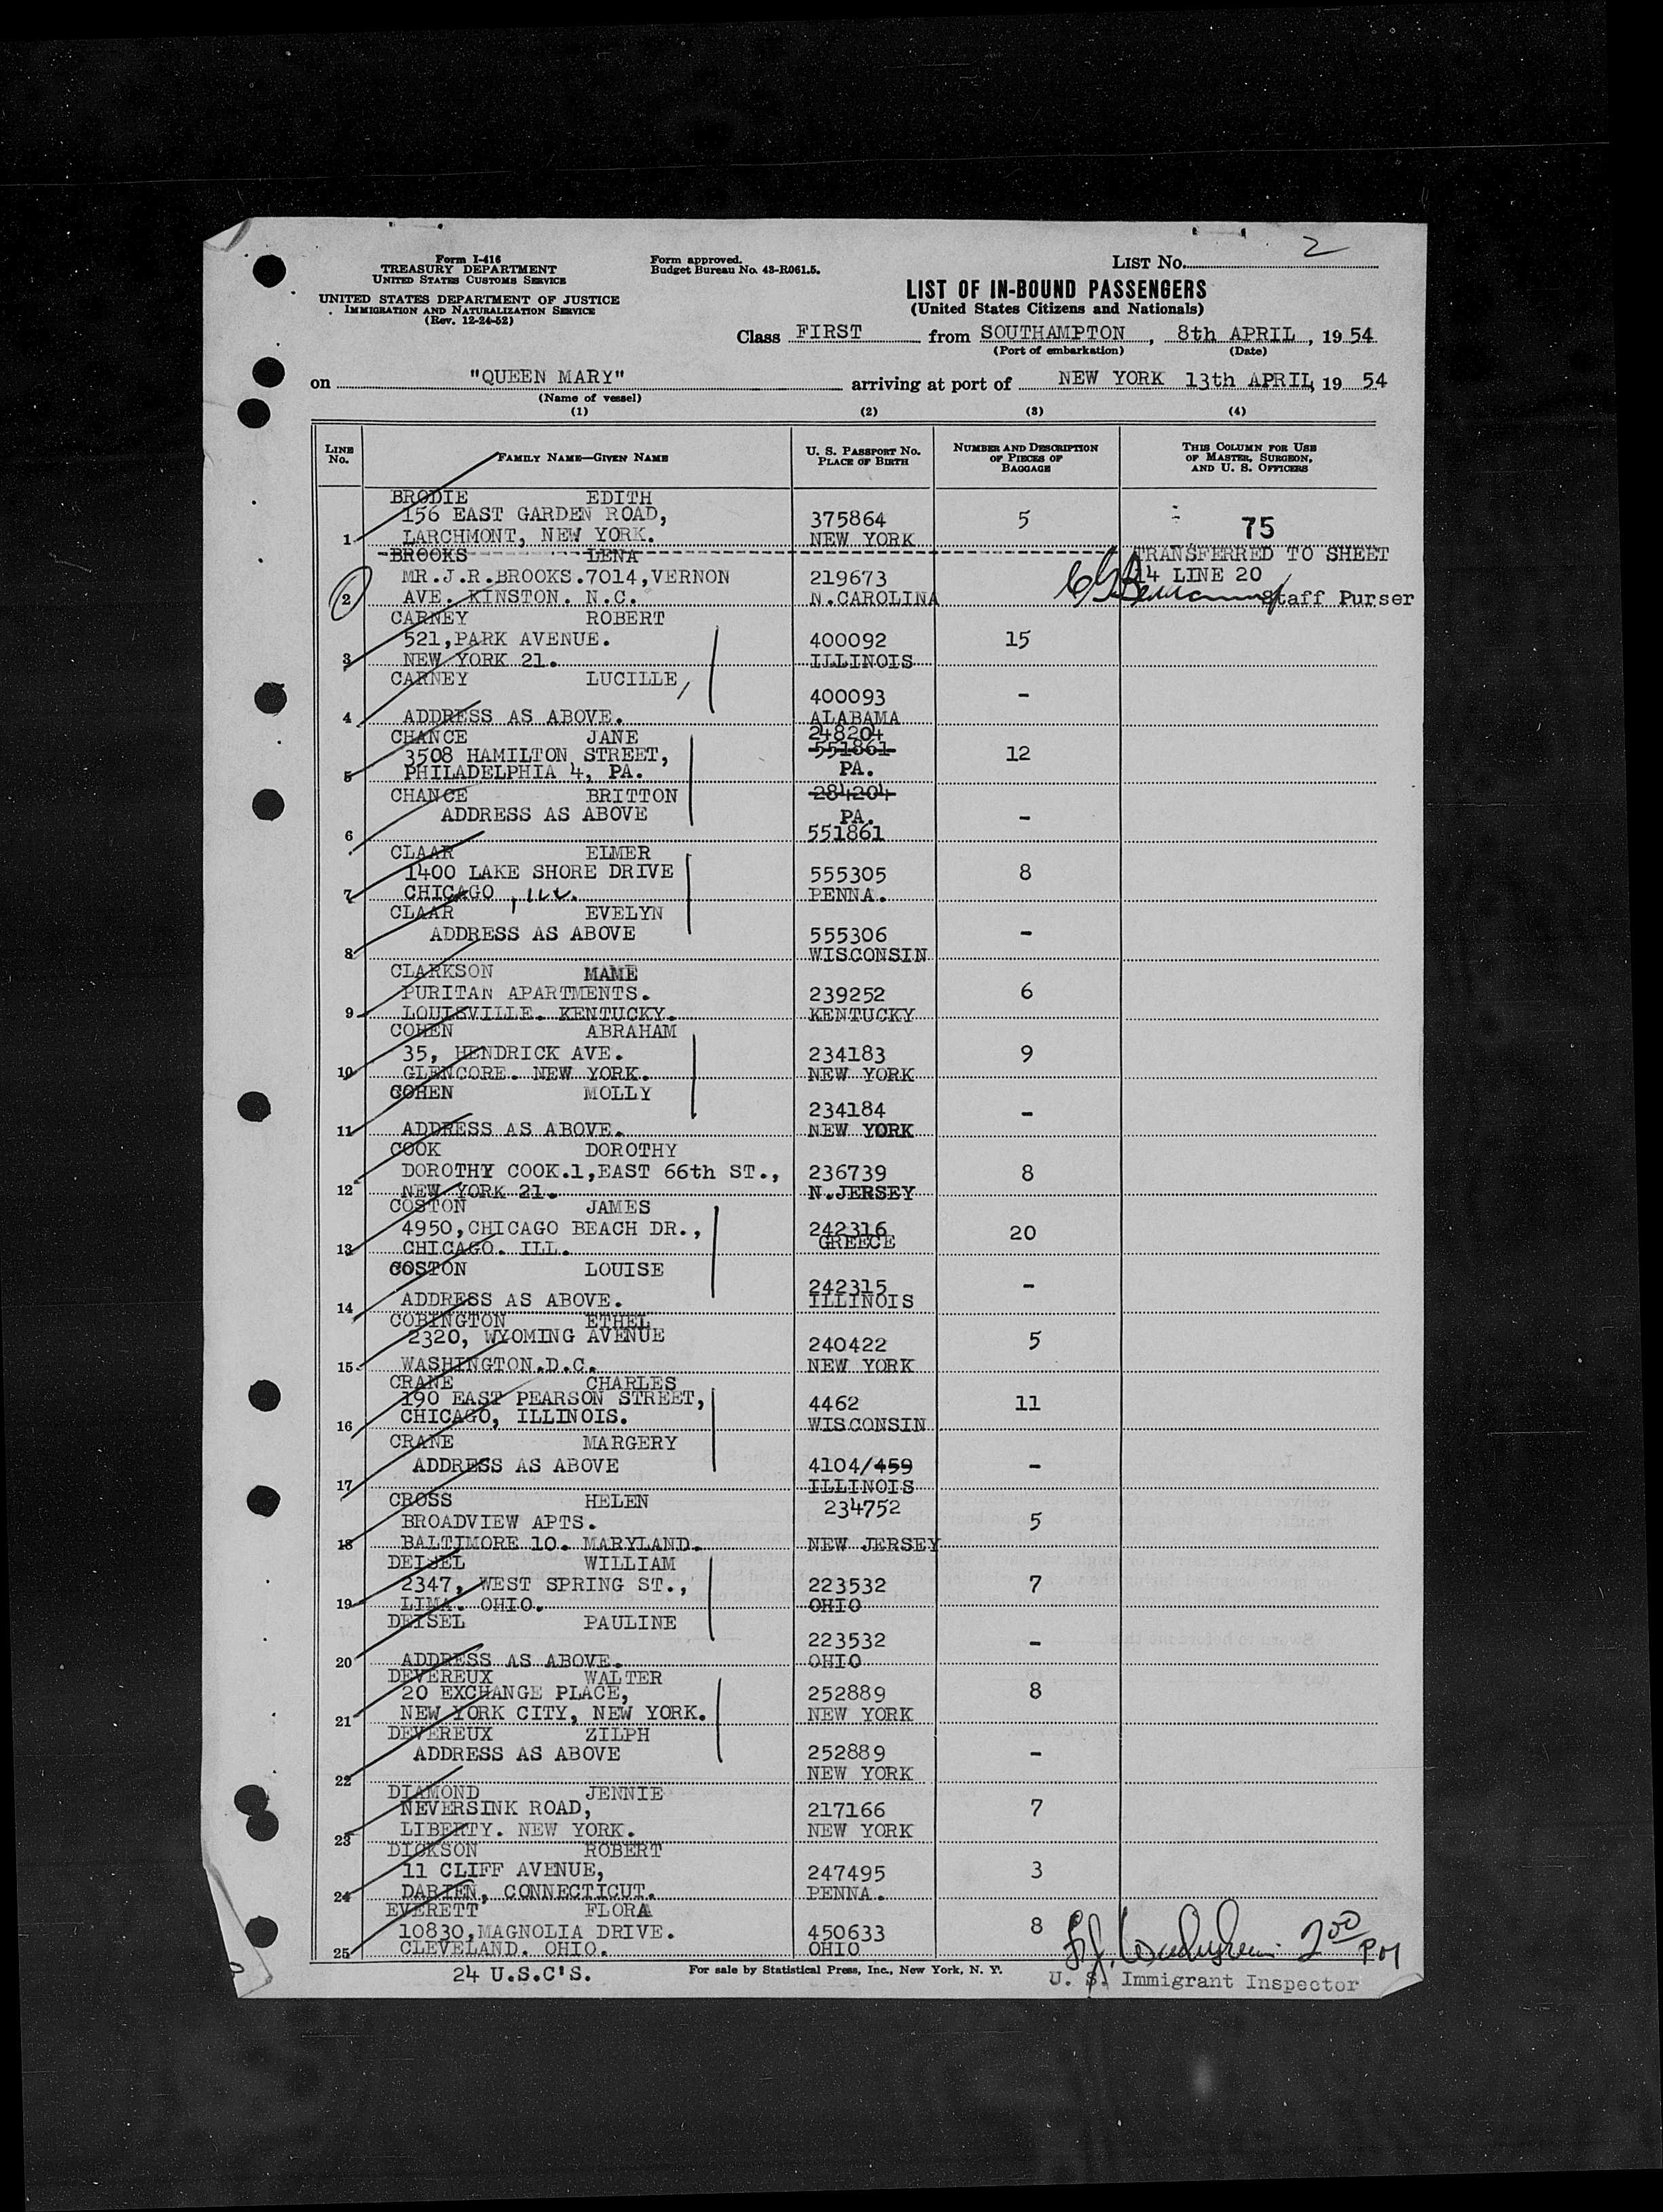 2
Form I-416
TREASURY DEPARTMENT
UNITED STATES CUSTOMS SERVICE
UNITED STATES DEPARTMENT OF JUSTICE
IMMIGRATION AND NATURALIZATION SERVICE
(Rev. 12-24-52)
Form approved.
Budget Bureau No. 43-R061.5.
LIST No.
LIST OF IN-BOUND PASSENGERS
(United States Citizens and Nationals)
Class FIRST from SOUTHAMPTON, 8th APRIL, 1954
(Port of embarkation) (Date)
on "QUEEN MARY" arriving at port of NEW YORK 13th APRIL, 19 54
(Name of vessel)
(1) (2) (3) (4)
LINE No. FAMILY NAME—GIVEN NAME U. S. PASSPORT NO. PLACE OF BIRTH NUMBER AND DESCRIPTION OF PIECES OF BAGGAGE THIS COLUMN FOR USE OF MASTER, SURGEON, AND U. S. OFFICERS
BRODIE EDITH
156 EAST GARDEN ROAD, 375864 5 75
1 LARCHMONT, NEW YORK. NEW YORK
BROOKS LENA TRANSFERRED TO SHEET
MR.J.R.BROOKS.7014,VERNON 219673 14 LINE 20
2 AVE. KINSTON. N.C. N.CAROLINA Staff Purser
CARNEY ROBERT
521,PARK AVENUE. 400092 15
3 NEW YORK 21. ILLINOIS
CARNEY LUCILLE
400093 -
4 ADDRESS AS ABOVE. ALABAMA
CHANCE JANE 248204
3508 HAMILTON STREET, 551861 12
5 PHILADELPHIA 4, PA. PA.
CHANCE BRITTON 284204
ADDRESS AS ABOVE PA. -
6 551861
CLAAR ELMER
1400 LAKE SHORE DRIVE 555305 8
7 CHICAGO, ILL. PENNA.
CLAAR EVELYN
ADDRESS AS ABOVE 555306 -
8 WISCONSIN
CLARKSON MAME
PURITAN APARTMENTS. 239252 6
9 LOUISVILLE. KENTUCKY. KENTUCKY
COHEN ABRAHAM
35, HENDRICK AVE. 234183 9
10 GLENCORE. NEW YORK. NEW YORK
COHEN MOLLY
234184 -
11 ADDRESS AS ABOVE. NEW YORK
COOK DOROTHY
DOROTHY COOK.1,EAST 66th ST., 236739 8
12 NEW YORK 21. N.JERSEY
COSTON JAMES
4950,CHICAGO BEACH DR., 242316 20
13 CHICAGO. ILL. GREECE
COSTON LOUISE
242315 -
14 ADDRESS AS ABOVE. ILLINOIS
COBINGTON ETHEL
2320, WYOMING AVENUE 240422 5
15 WASHINGTON.D.C. NEW YORK
CRANE CHARLES
190 EAST PEARSON STREET, 4462 11
16 CHICAGO, ILLINOIS. WISCONSIN
CRANE MARGERY
ADDRESS AS ABOVE 4104/459 -
17 ILLINOIS
CROSS HELEN 234752
BROADVIEW APTS. 5
18 BALTIMORE 10. MARYLAND. NEW JERSEY
DEISEL WILLIAM
2347, WEST SPRING ST., 223532 7
19 LIMA. OHIO. OHIO
DEISEL PAULINE
223532 -
20 ADDRESS AS ABOVE. OHIO
DEVEREUX WALTER
20 EXCHANGE PLACE, 252889 8
21 NEW YORK CITY, NEW YORK. NEW YORK
DEVEREUX ZILPH
ADDRESS AS ABOVE 252889 -
22 NEW YORK
DIAMOND JENNIE
NEVERSINK ROAD, 217166 7
23 LIBERTY. NEW YORK. NEW YORK
DICKSON ROBERT
11 CLIFF AVENUE, 247495 3
24 DARIEN, CONNECTICUT. PENNA.
EVERETT FLORA
10830,MAGNOLIA DRIVE. 450633 8 2 00 PM
25 CLEVELAND. OHIO. OHIO
24 U.S.C'S. For sale by Statistical Press, Inc., New York, N. Y. U. S. Immigrant Inspector